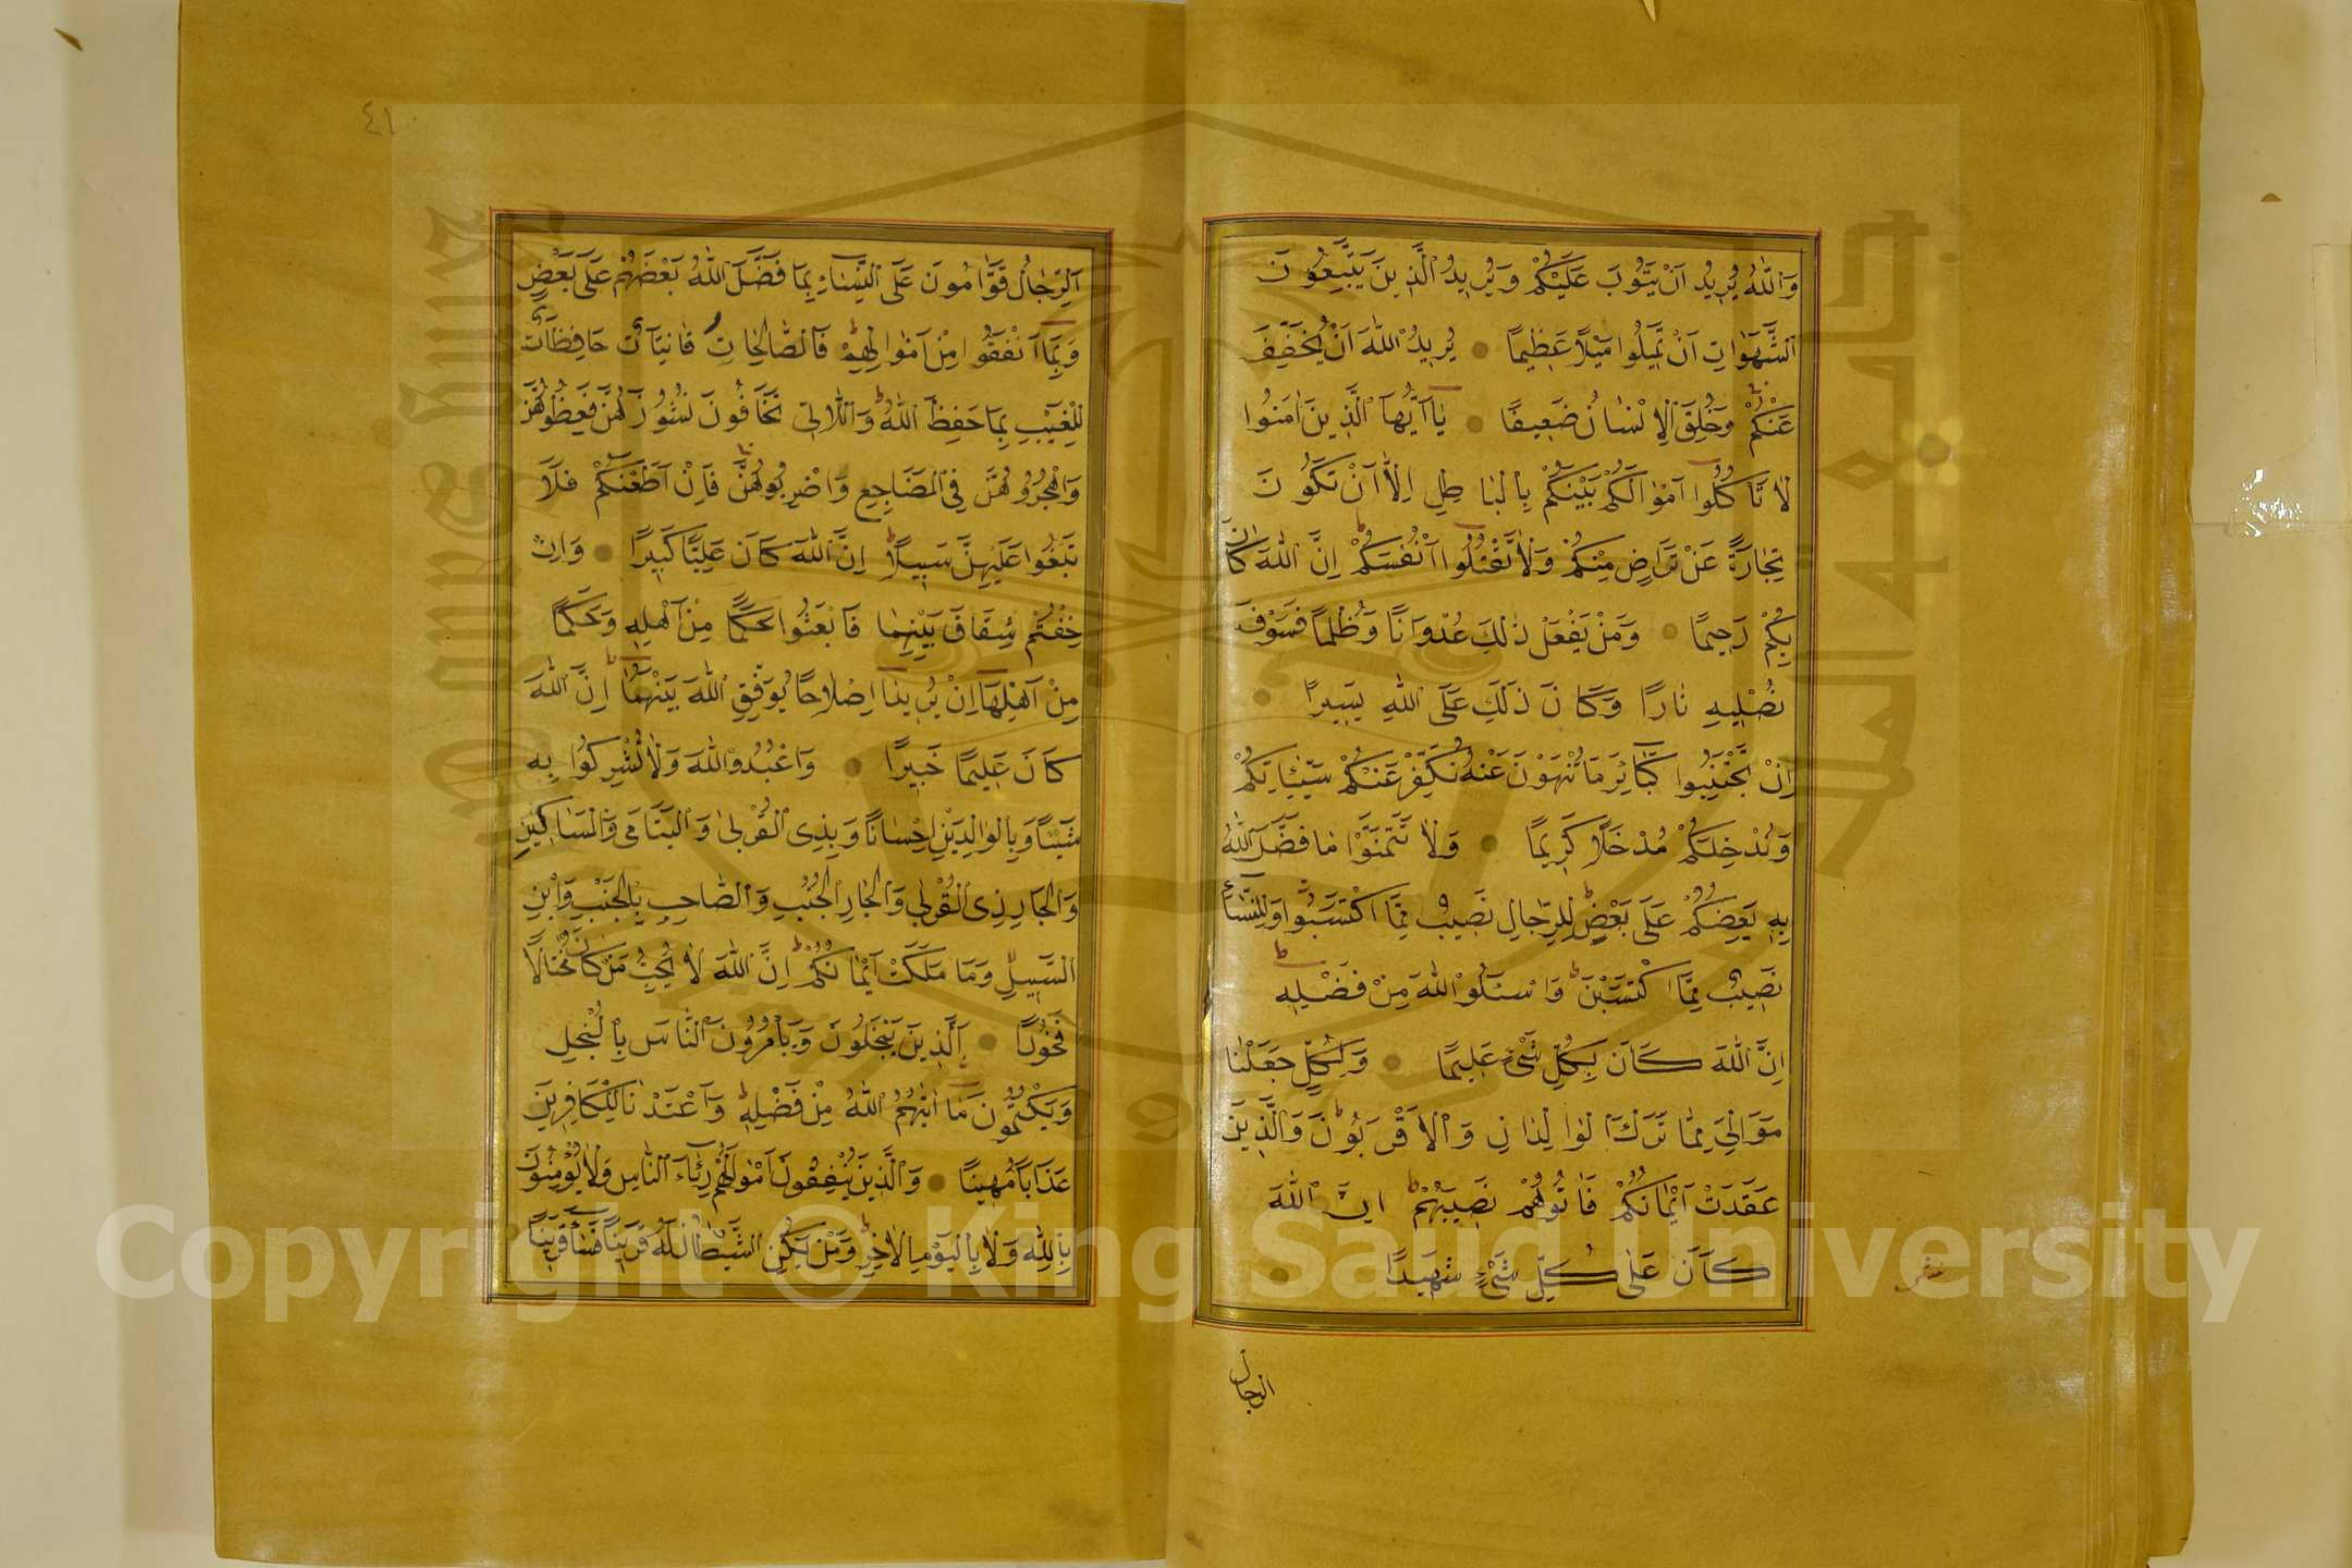 وَاللّٰهُ يُرِيدُ اَنْ يَتُوبَ عَلَيْكُمْ وَيُرِيدُ الَّذِينَ يَتَّبِعُونَ
الشَّهَوَاتِ اَنْ تَمِيلُوا مَيْلًا عَظِيمًا • يُرِيدُ اللّٰهُ اَنْ يُخَفِّفَ
عَنْكُمْ وَخُلِقَ الْاِنْسَانُ ضَعِيفًا • يَا اَيُّهَا الَّذِينَ اٰمَنُوا
لَا تَاكُلُوا اَمْوَالَكُمْ بَيْنَكُمْ بِالْبَاطِلِ اِلَّا اَنْ تَكُونَ
تِجَارَةً عَنْ تَرَاضٍ مِنْكُمْ وَلَا تَقْتُلُوا اَنْفُسَكُمْ اِنَّ اللّٰهَ كَانَ
بِكُمْ رَحِيمًا • وَمَنْ يَفْعَلْ ذٰلِكَ عُدْوَانًا وَظُلْمًا فَسَوْفَ
نُصْلِيهِ نَارًا وَكَانَ ذٰلِكَ عَلَى اللّٰهِ يَسِيرًا •
اِنْ تَجْتَنِبُوا كَبَائِرَ مَا تُنْهَوْنَ عَنْهُ نُكَفِّرْ عَنْكُمْ سَيِّئَاتِكُمْ
وَنُدْخِلْكُمْ مُدْخَلًا كَرِيمًا • وَلَا تَتَمَنَّوْا مَا فَضَّلَ اللّٰهُ
بِهِ بَعْضَكُمْ عَلَى بَعْضٍ لِلرِّجَالِ نَصِيبٌ مِمَّا اكْتَسَبُوا وَلِلنِّسَاءِ
نَصِيبٌ مِمَّا اكْتَسَبْنَ وَاسْئَلُوا اللّٰهَ مِنْ فَضْلِهِ
اِنَّ اللّٰهَ كَانَ بِكُلِّ شَيْءٍ عَلِيمًا • وَلِكُلٍّ جَعَلْنَا
مَوَالِيَ مِمَّا تَرَكَ الْوَالِدَانِ وَالْاَقْرَبُونَ وَالَّذِينَ
عَقَدَتْ اَيْمَانُكُمْ فَاٰتُوهُمْ نَصِيبَهُمْ اِنَّ اللّٰهَ
كَانَ عَلٰى كُلِّ شَيْءٍ شَهِيدًا •
الرجال
٤١
اَلرِّجَالُ قَوَّامُونَ عَلَى النِّسَاءِ بِمَا فَضَّلَ اللّٰهُ بَعْضَهُمْ عَلَى بَعْضٍ
وَبِمَا اَنْفَقُوا مِنْ اَمْوَالِهِمْ فَالصَّالِحَاتُ قَانِتَاتٌ حَافِظَاتٌ
لِلْغَيْبِ بِمَا حَفِظَ اللّٰهُ وَاللَّاتِي تَخَافُونَ نُشُوزَهُنَّ فَعِظُوهُنَّ
وَاهْجُرُوهُنَّ فِي الْمَضَاجِعِ وَاضْرِبُوهُنَّ فَاِنْ اَطَعْنَكُمْ فَلَا
تَبْغُوا عَلَيْهِنَّ سَبِيلًا اِنَّ اللّٰهَ كَانَ عَلِيًّا كَبِيرًا • وَاِنْ
خِفْتُمْ شِقَاقَ بَيْنِهِمَا فَابْعَثُوا حَكَمًا مِنْ اَهْلِهِ وَحَكَمًا
مِنْ اَهْلِهَا اِنْ يُرِيدَا اِصْلَاحًا يُوَفِّقِ اللّٰهُ بَيْنَهُمَا اِنَّ اللّٰهَ
كَانَ عَلِيمًا خَبِيرًا • وَاعْبُدُوا اللّٰهَ وَلَا تُشْرِكُوا بِهِ
شَيْئًا وَبِالْوَالِدَيْنِ اِحْسَانًا وَبِذِي الْقُرْبٰى وَالْيَتَامٰى وَالْمَسَاكِينِ
وَالْجَارِ ذِي الْقُرْبٰى وَالْجَارِ الْجُنُبِ وَالصَّاحِبِ بِالْجَنْبِ وَابْنِ
السَّبِيلِ وَمَا مَلَكَتْ اَيْمَانُكُمْ اِنَّ اللّٰهَ لَا يُحِبُّ مَنْ كَانَ مُخْتَالًا
فَخُورًا • اَلَّذِينَ يَبْخَلُونَ وَيَامُرُونَ النَّاسَ بِالْبُخْلِ
وَيَكْتُمُونَ مَا اٰتٰيهُمُ اللّٰهُ مِنْ فَضْلِهِ وَاَعْتَدْنَا لِلْكَافِرِينَ
عَذَابًا مُهِينًا • وَالَّذِينَ يُنْفِقُونَ اَمْوَالَهُمْ رِئَاءَ النَّاسِ وَلَا يُؤْمِنُونَ
بِاللّٰهِ وَلَا بِالْيَوْمِ الْاٰخِرِ وَمَنْ يَكُنِ الشَّيْطَانُ لَهُ قَرِينًا فَسَاءَ قَرِينًا
Copyright © King Saud University